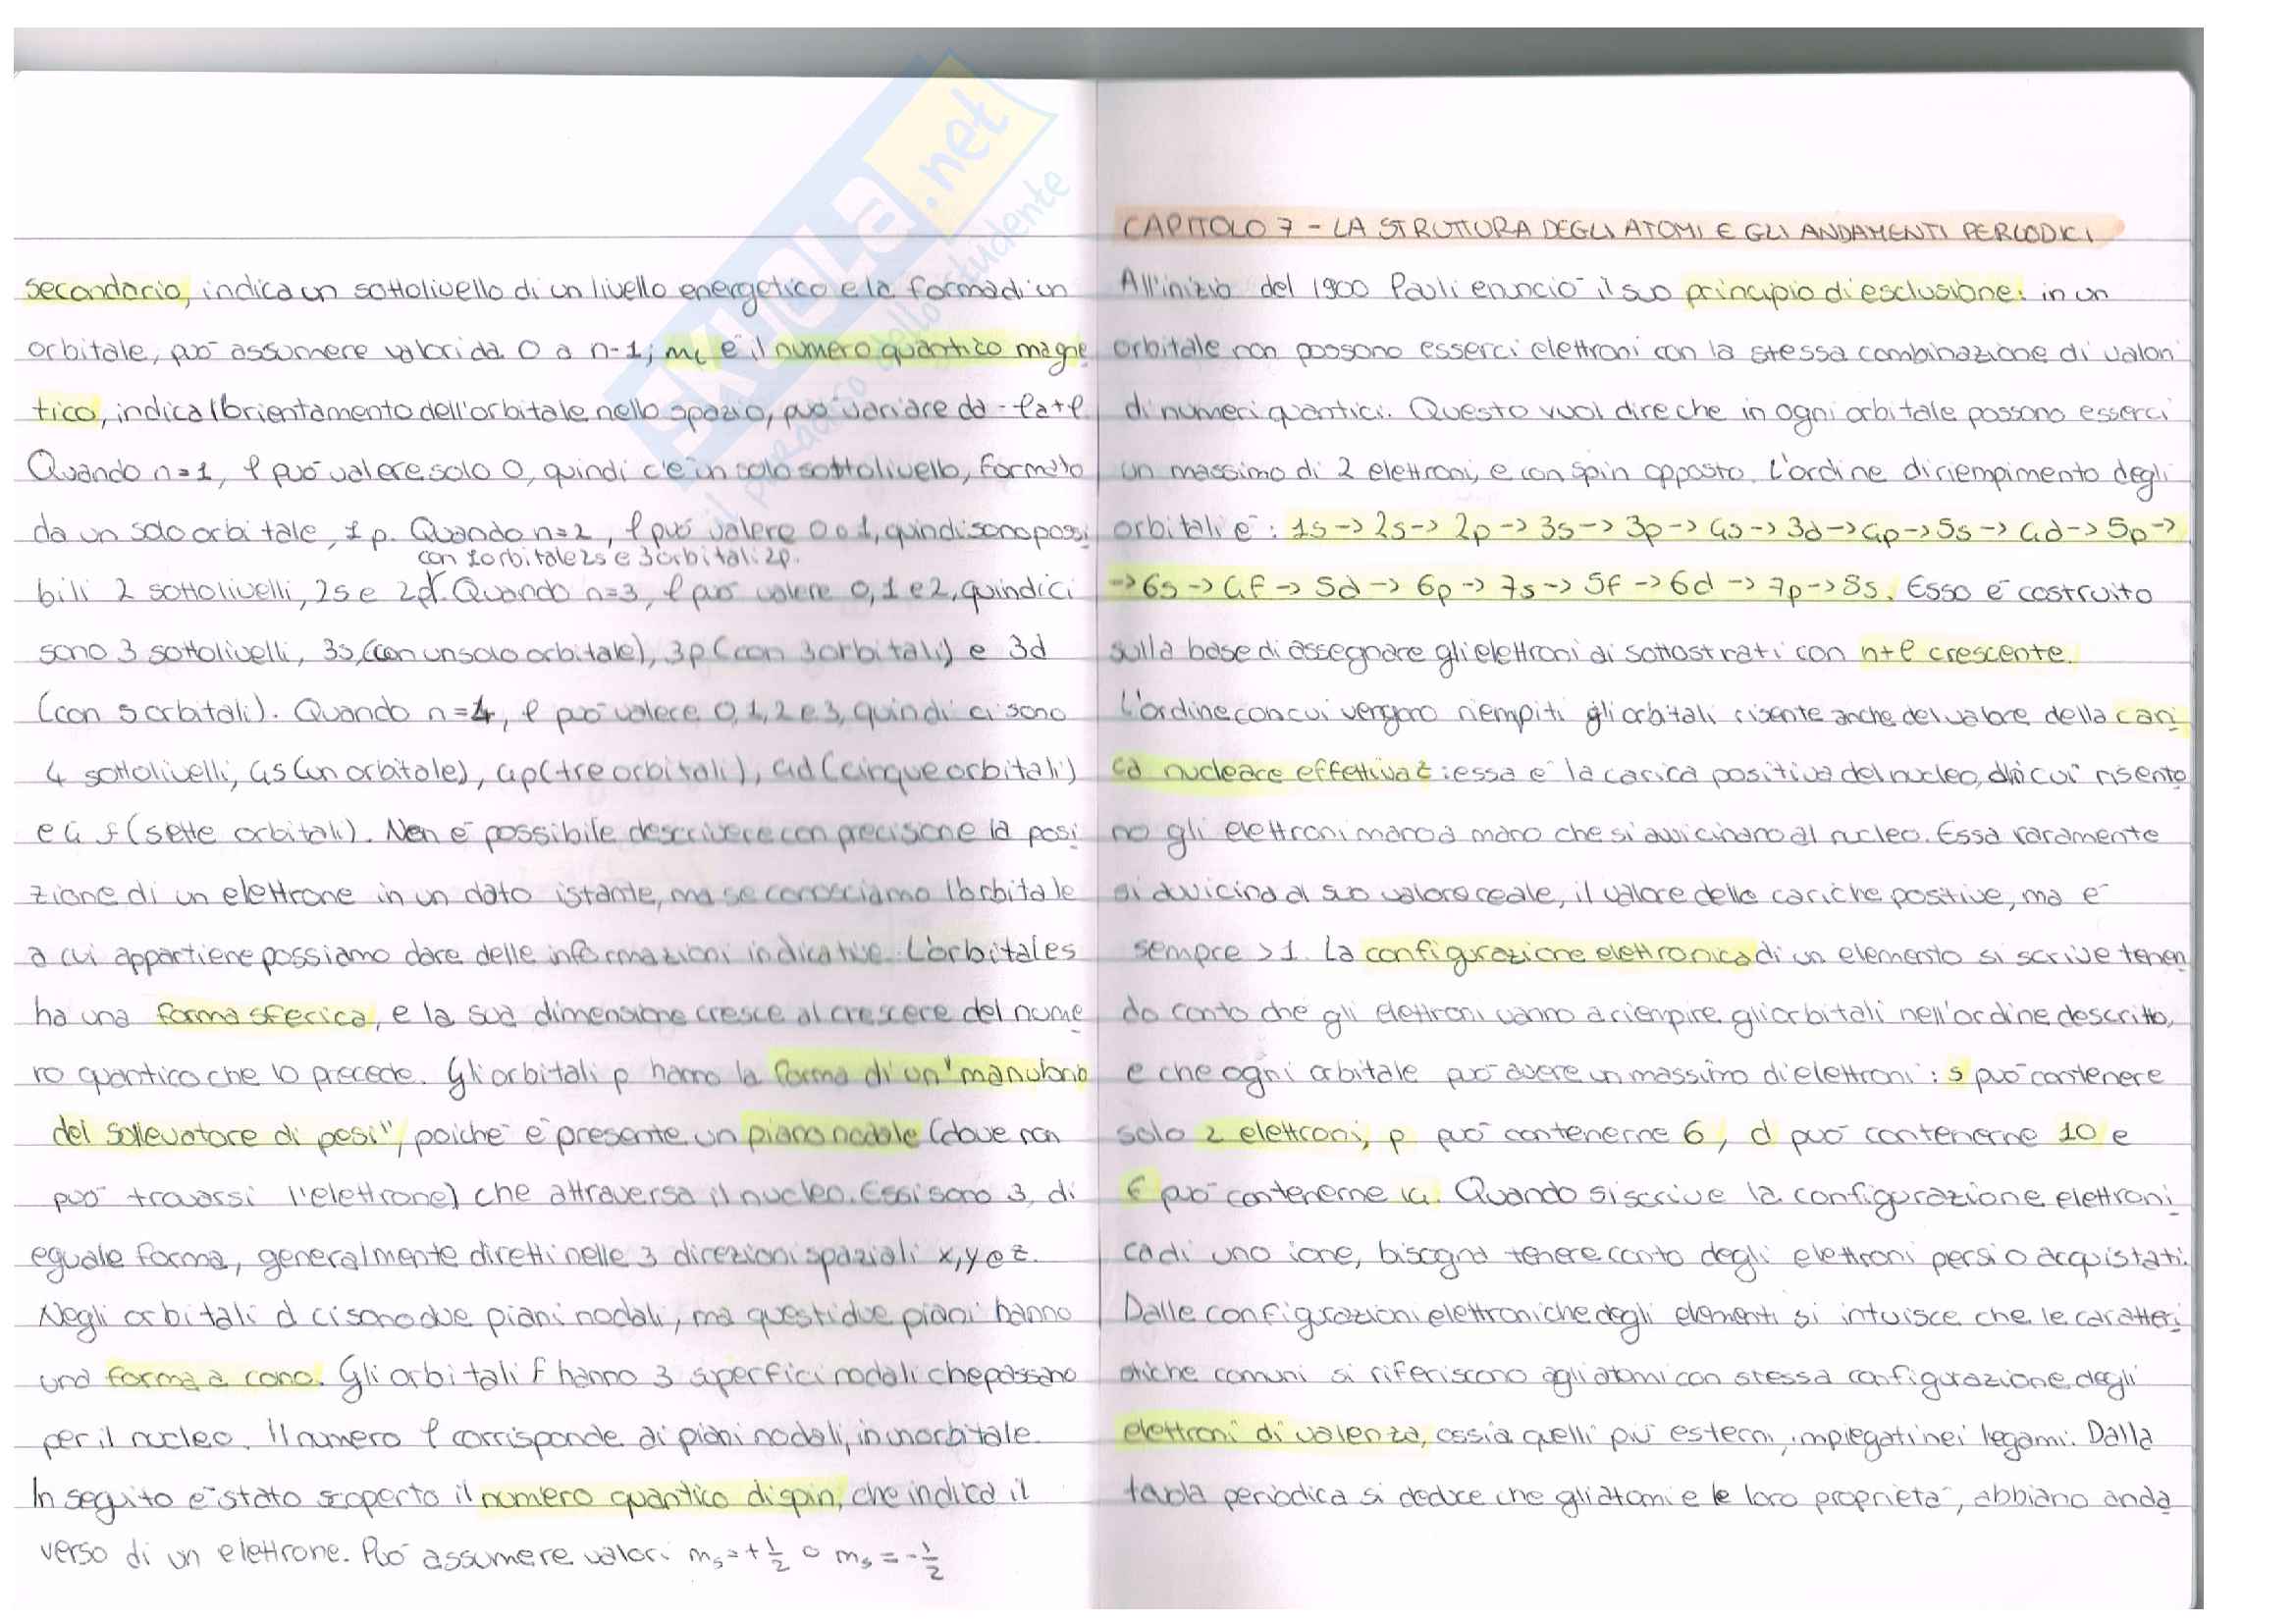 SKUOLA.net
il paradiso dello studente
secondario, indica un sottolivello di un livello energetico e la forma di un
orbitale, può assumere valori da 0 a n-1; mℓ è il numero quantico magne
tico, indica l'orientamento dell'orbitale nello spazio, può variare da -ℓ a +ℓ
Quando n=1, ℓ può valere solo 0, quindi c'è un solo sottolivello, formato
da un solo orbitale, 1 p. Quando n=2, ℓ può valere 0 o 1, quindi sono possi
con 1 orbitale 2s e 3 orbitali 2p.
bili 2 sottolivelli, 2s e 2p. Quando n=3, ℓ può valere 0, 1 e 2, quindi ci
sono 3 sottolivelli, 3s, (con un solo orbitale), 3p (con 3 orbitali) e 3d
(con 5 orbitali). Quando n=4, ℓ può valere 0, 1, 2 e 3, quindi ci sono
4 sottolivelli, 4s (un orbitale), 4p (tre orbitali), 4d (cinque orbitali)
e 4 f (sette orbitali). Non è possibile descrivere con precisione la posi
zione di un elettrone in un dato istante, ma se conosciamo l'orbitale
a cui appartiene possiamo dare delle informazioni indicative. L'orbitale s
ha una forma sferica, e la sua dimensione cresce al crescere del nume
ro quantico che lo precede. Gli orbitali p hanno la forma di un "manubrio
del sollevatore di pesi", poiché è presente un piano nodale (dove non
può trovarsi l'elettrone) che attraversa il nucleo. Essi sono 3, di
eguale forma, generalmente diretti nelle 3 direzioni spaziali x, y e z.
Negli orbitali d ci sono due piani nodali, ma questi due piani hanno
una forma a cono. Gli orbitali f hanno 3 superfici nodali che passano
per il nucleo. Il numero ℓ corrisponde ai piani nodali, in un orbitale.
In seguito è stato scoperto il numero quantico di spin, che indica il
verso di un elettrone. Può assumere valori ms=+1/2 o ms=-1/2
CAPITOLO 7 - LA STRUTTURA DEGLI ATOMI E GLI ANDAMENTI PERIODICI
All'inizio del 1900 Pauli enunciò il suo principio di esclusione: in un
orbitale non possono esserci elettroni con la stessa combinazione di valori
di numeri quantici. Questo vuol dire che in ogni orbitale possono esserci
un massimo di 2 elettroni, e con spin opposto. L'ordine di riempimento degli
orbitali è: 1s->2s->2p->3s->3p->4s->3d->4p->5s->4d->5p->
->6s->4f->5d->6p->7s->5f->6d->7p->8s. Esso è costruito
sulla base di assegnare gli elettroni ai sottostrati con n+ℓ crescente.
L'ordine con cui vengono riempiti gli orbitali risente anche del valore della cari
ca nucleare effettiva z: essa è la carica positiva del nucleo, di cui risento
no gli elettroni mano a mano che si avvicinano al nucleo. Essa raramente
si avvicina al suo valore reale, il valore delle cariche positive, ma è
sempre >1. La configurazione elettronica di un elemento si scrive tenen
do conto che gli elettroni vanno a riempire gli orbitali nell'ordine descritto,
e che ogni orbitale può avere un massimo di elettroni: s può contenere
solo 2 elettroni, p può contenerne 6, d può contenerne 10 e
f può contenerne 14. Quando si scrive la configurazione elettroni
ca di uno ione, bisogna tenere conto degli elettroni persi o acquistati.
Dalle configurazioni elettroniche degli elementi si intuisce che le caratteri
stiche comuni si riferiscono agli atomi con stessa configurazione degli
elettroni di valenza, ossia quelli più esterni, impiegati nei legami. Dalla
tavola periodica si deduce che gli atomi e le loro proprietà, abbiano anda